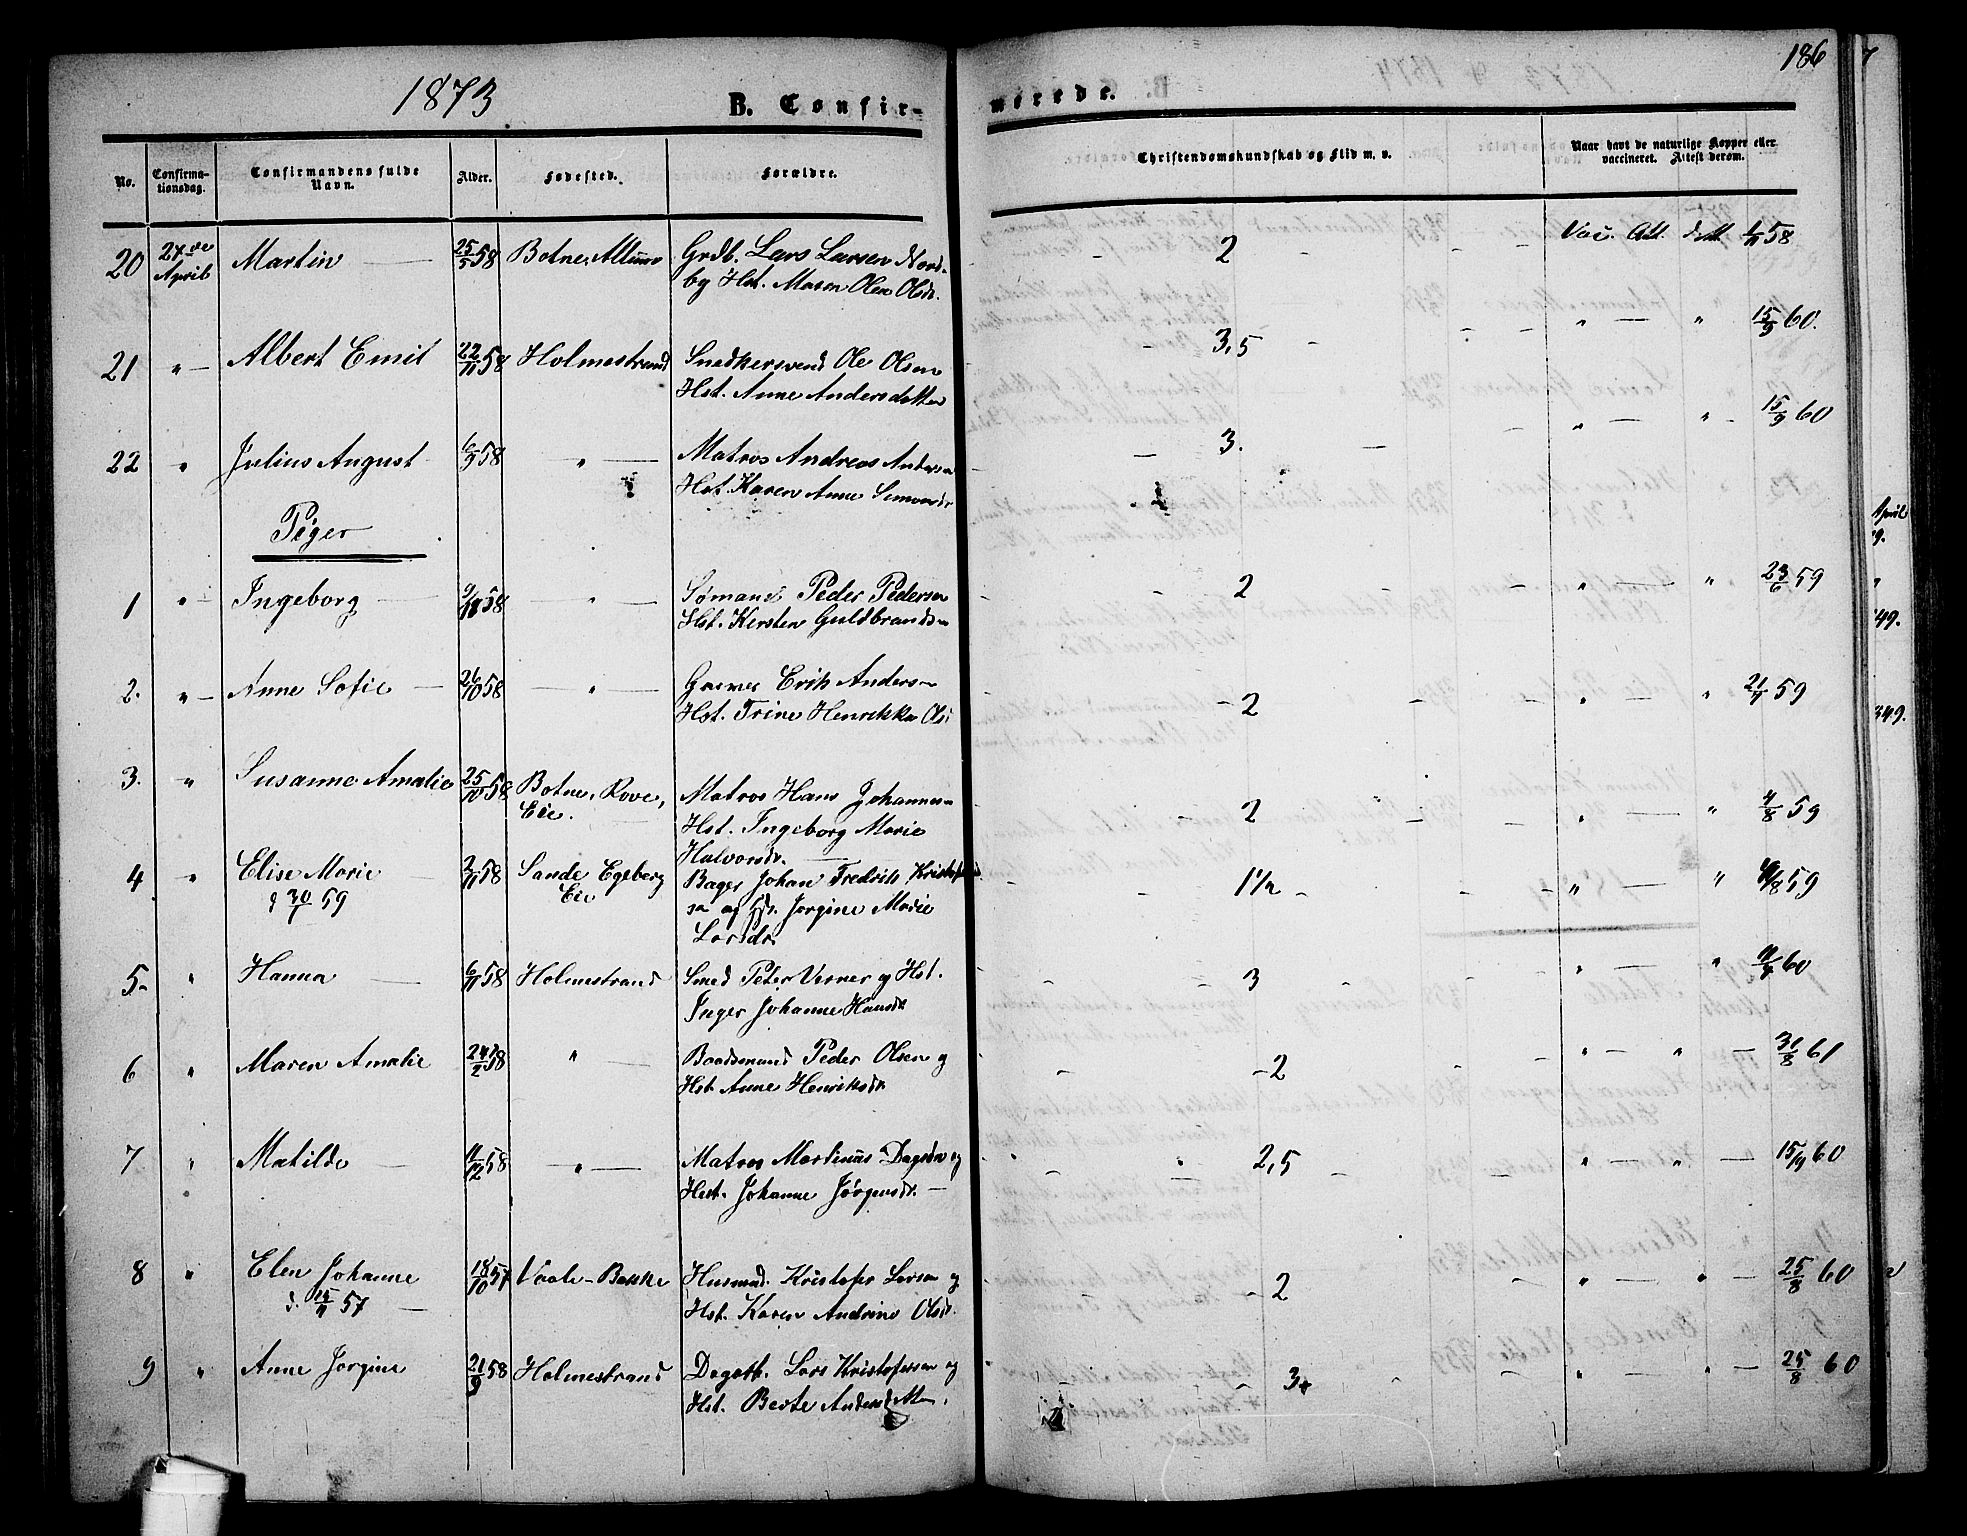 1873
B. Confir-
merede.
186
No.
Confirma-
tionsdag.
Confirmandens fulde
Navn.
Alder.
Fødested.
Forældre.
Christendomskundskab og Flid m. v.
Naar havt de naturlige Kopper eller
vaccineret. Attest derom.
20 27de April Martin — 25/5 58 Botne, Grdb. Lars Larsen Nord-
by Hst. Maren Olea Olsdr. 2 Vac. Att. 58
21 " — Albert Emil 22/11 58 Holmestrand Snedkersvend Ole Olsen
Hst. Anne Andersdatter 3,5 " — " 15/9 60.
22 " Julius August 6/9 58 " — Matros Andreas Andersen
Hst. Karen Anne Simonsdr 3. " " 15/9 60
Piger
1 " Ingeborg — 9/11 58 " — Sømand Peder Pedersen
Hst. Kersten Guldbrands 2 " — " 23/6 59
2. " — Anne Sofie — 26/10 58 — " — Erik Anders
Hst. Trine Henrikke Ols 2 " — " 21/7 59
3. " Susanne Amalie 25/10 58 Botne, Rove, Matros Hans Johannes
Eie. Hst. Ingeborg Marie
Halvorsdr. — 2 " — " 4/8 59
4 " Elise Marie 2/11 58 Sande Egeberg Bager Johan Fredrik
30/1 59 Eie Jørgine Marie
Larsdr. 1 1/2 " — " 59
5 " Hanna — 6/11 58 Holmestrand Smed Peter Verner og Hst.
Inger Johanne Hansdr 3 " " 60
6 " Maren Amalie 24/2 58 " — Baadsmand Peder Olsen og
Hst. Anne Henriksdr 2 " — " — 31/8 61
7 " Matilde — 11/12 58 — " — Matros Martinus og
Hst. Johanne Jørgensdr. — 2,5 " — " 15/9 60
8 " Elen Johanne 18/10 57 Vaale-Bakke Husmd. Kristofer Larsen og
d. 15/11 57 — Hst. Karen Andrine Olsd. 2 " — " — 25/8 60
9 " Anne Jørgine 21/9 58 Holmestrand Lars Kristofersen og
Hst. Berte Andersdatter. 3+ " " — 25/8 60